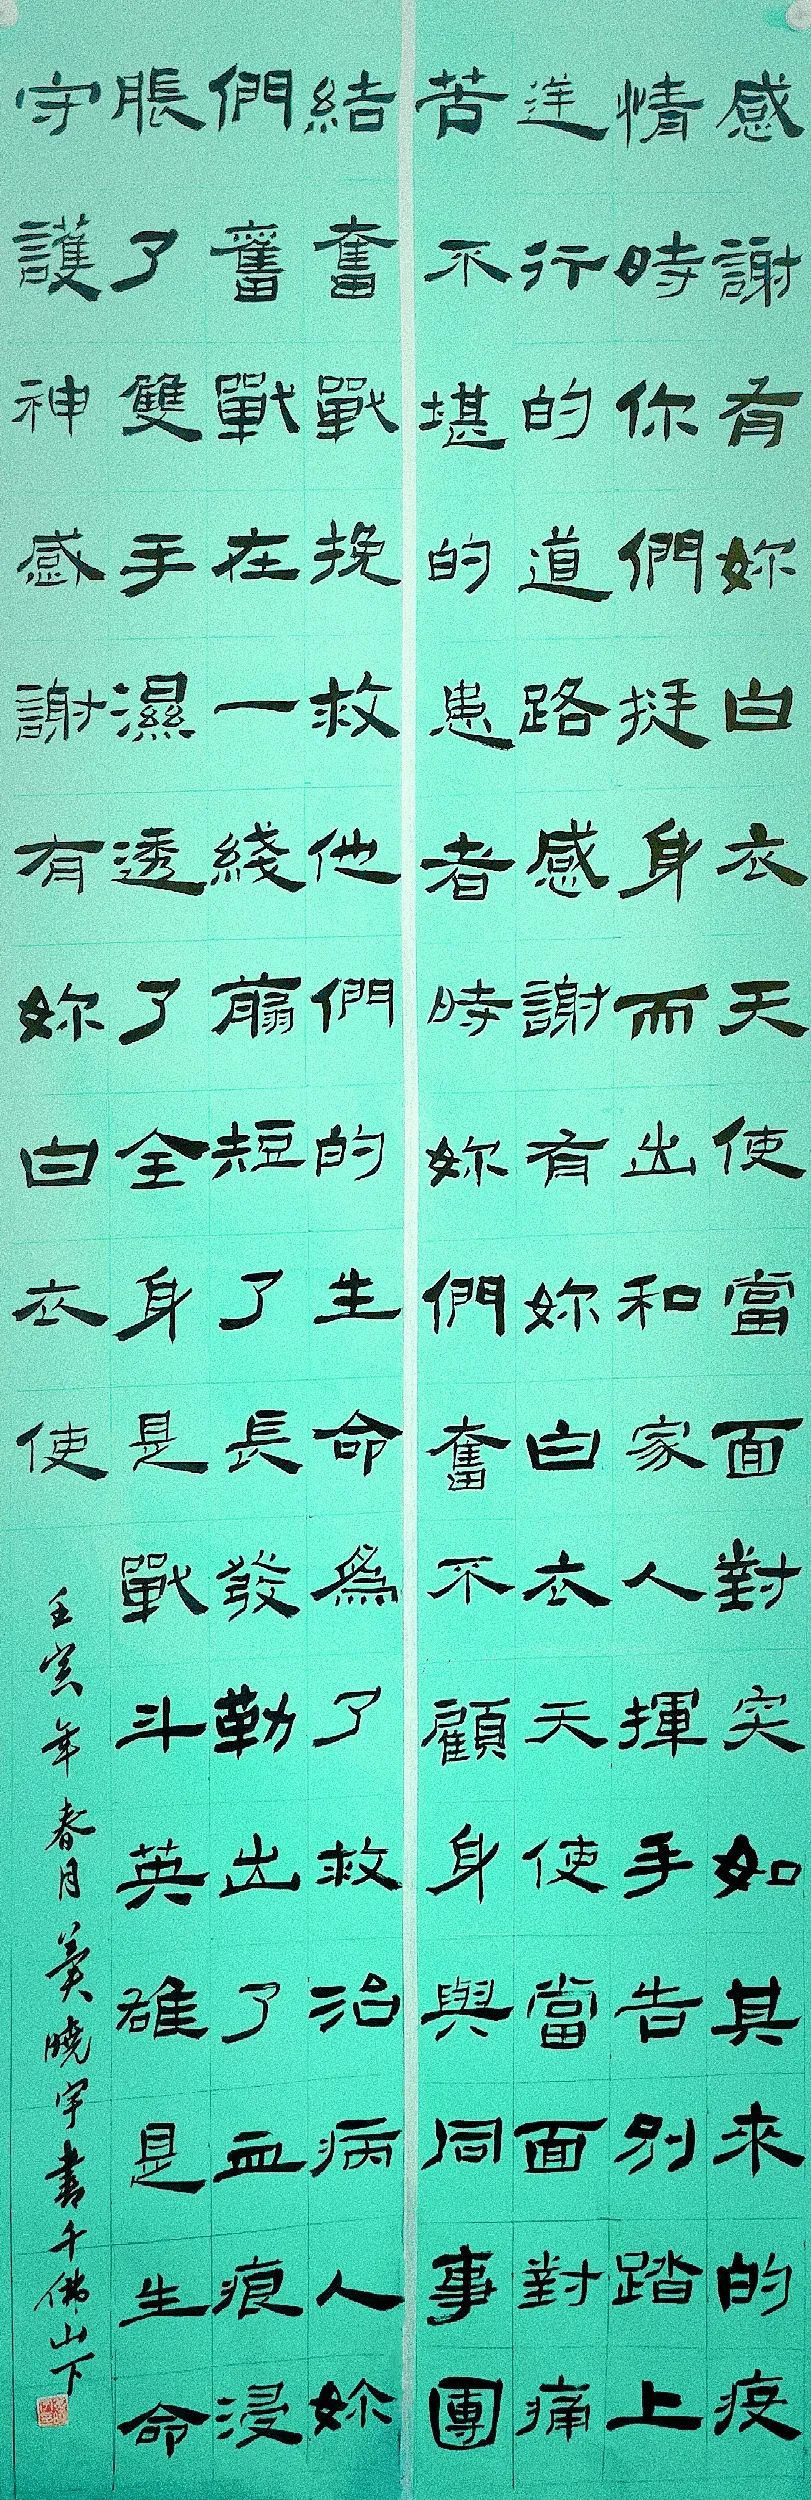 感謝有妳白衣天使當面對突如其来的疫
情時你們挺身而出和家人揮手告别踏上
逆行的道路感謝有妳白衣天使當面對痛
苦不堪的患者時妳們奮不顧身與同事團
結奮戰挽救他們的生命為了救治病人妳
們奮戰在一綫剪短了長發勒出了血痕浸
脹了雙手濕透了全身是戰斗英雄是生命
守護神感謝有妳白衣使
壬寅年春月姜曉宇書千佛山下